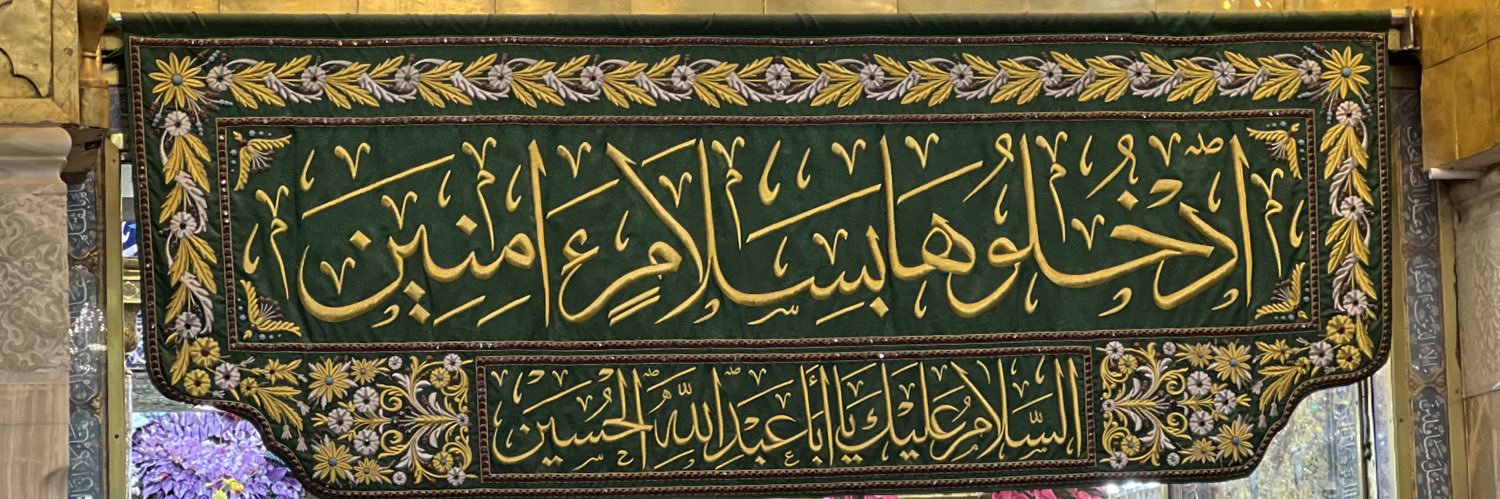 ادْخُلُوهَا بِسَلَامٍ ءَامِنِينَ
السَّلَامُ عَلَيْكَ يَا أَبَا عَبْدِ اللَّهِ الْحُسَيْن